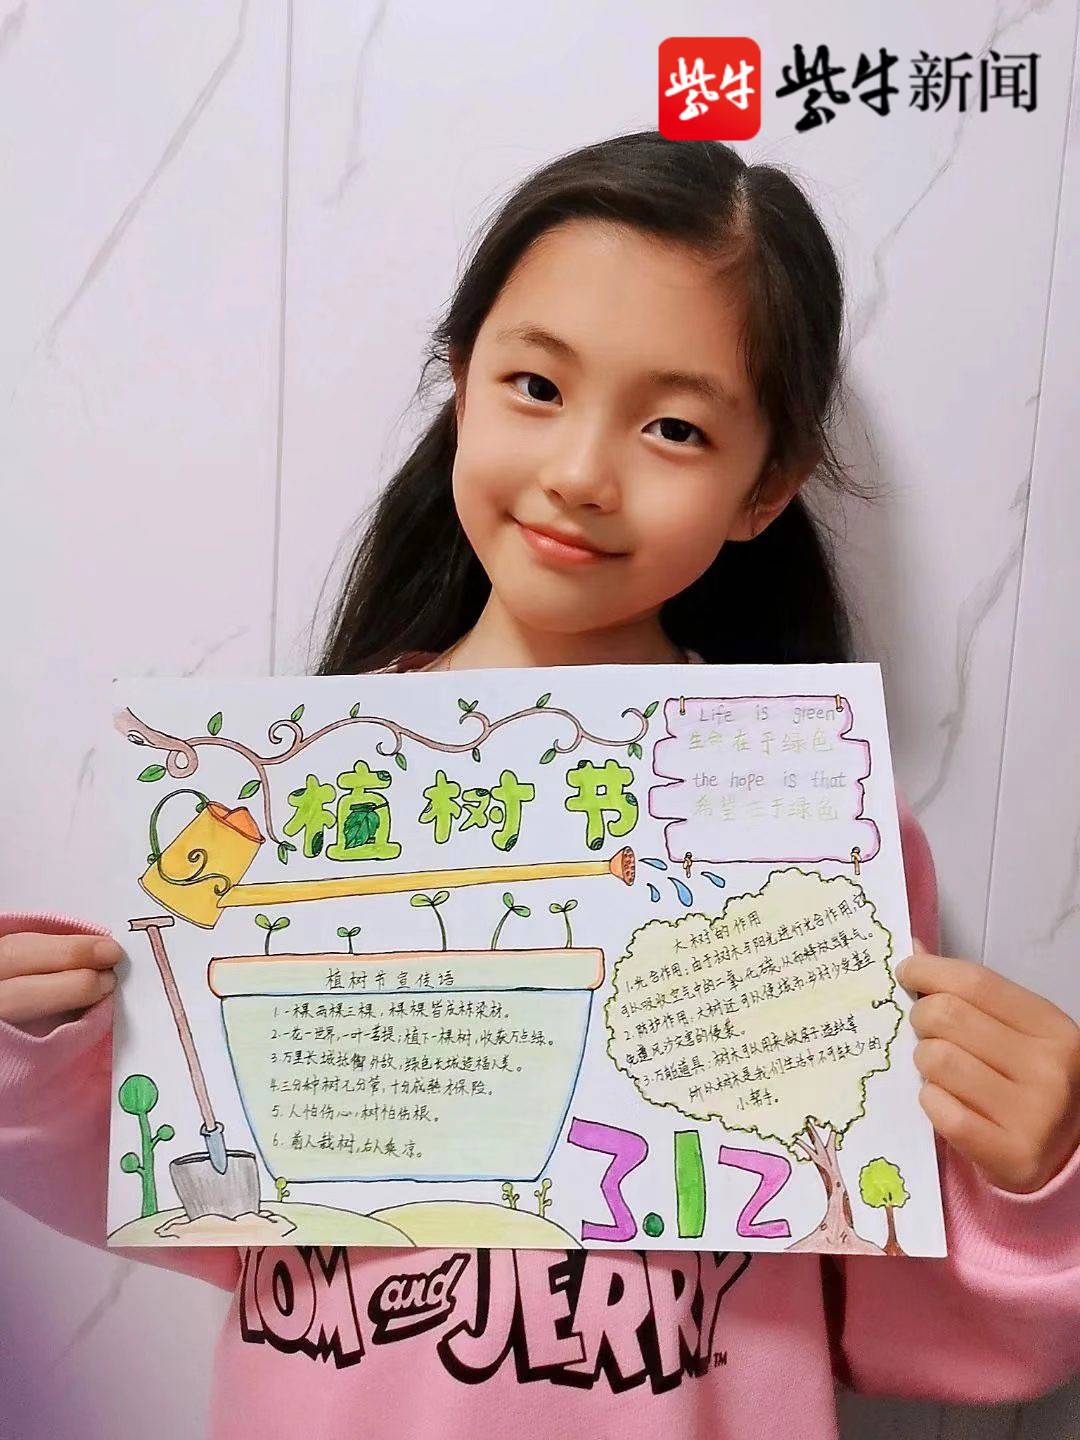 紫牛 紫牛新闻
Life is green
生命在于绿色
the hope is that
希望在于绿色
植树节
植树节宣传语
1.一棵两棵三棵,棵棵皆成栋梁材。
2.一花一世界,一叶一菩提;植下一棵树,收获万点绿。
3.万里长城抵御外敌,绿色长城造福人类。
4.三分种树七分管,十分成活才保险。
5.人怕伤心,树怕伤根。
6.前人栽树,后人乘凉。
大树的作用
1.光合作用:由于树木与阳光进行光合作用,它
可以吸收空气中的二氧化碳,从而释放出氧气。
2.防护作用:大树还可以使城市与村少受甚至
免遭风沙灾害的侵袭。
3.万能道具:树木可以用来做房子造纸等
所以树木是我们生活中不可缺少的
小帮手。
3.12
TOM and JERRY
TM